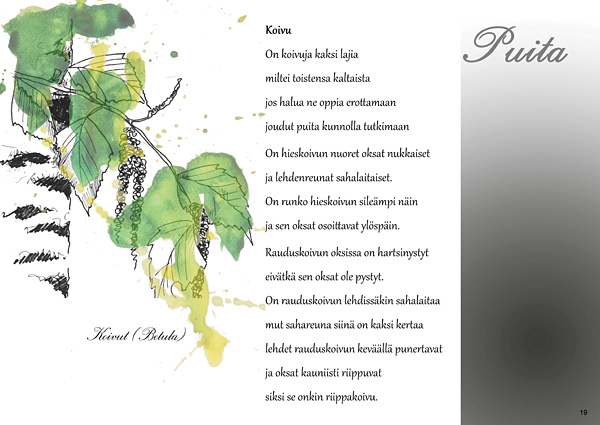 Koivu
On koivuja kaksi lajia
miltei toistensa kaltaista
jos halua ne oppia erottamaan
joudut puita kunnolla tutkimaan
On hieskoivun nuoret oksat nukkaiset
ja lehdenreunat sahalaitaiset.
On runko hieskoivun sileämpi näin
ja sen oksat osoittavat ylöspäin.
Rauduskoivun oksissa on hartsinystyt
eivätkä sen oksat ole pystyt.
On rauduskoivun lehdissäkin sahalaitaa
mut sahareuna siinä on kaksi kertaa
lehdet rauduskoivun keväällä punertavat
ja oksat kauniisti riippuvat
siksi se onkin riippakoivu.
Koivut (Betula)
Puita
19